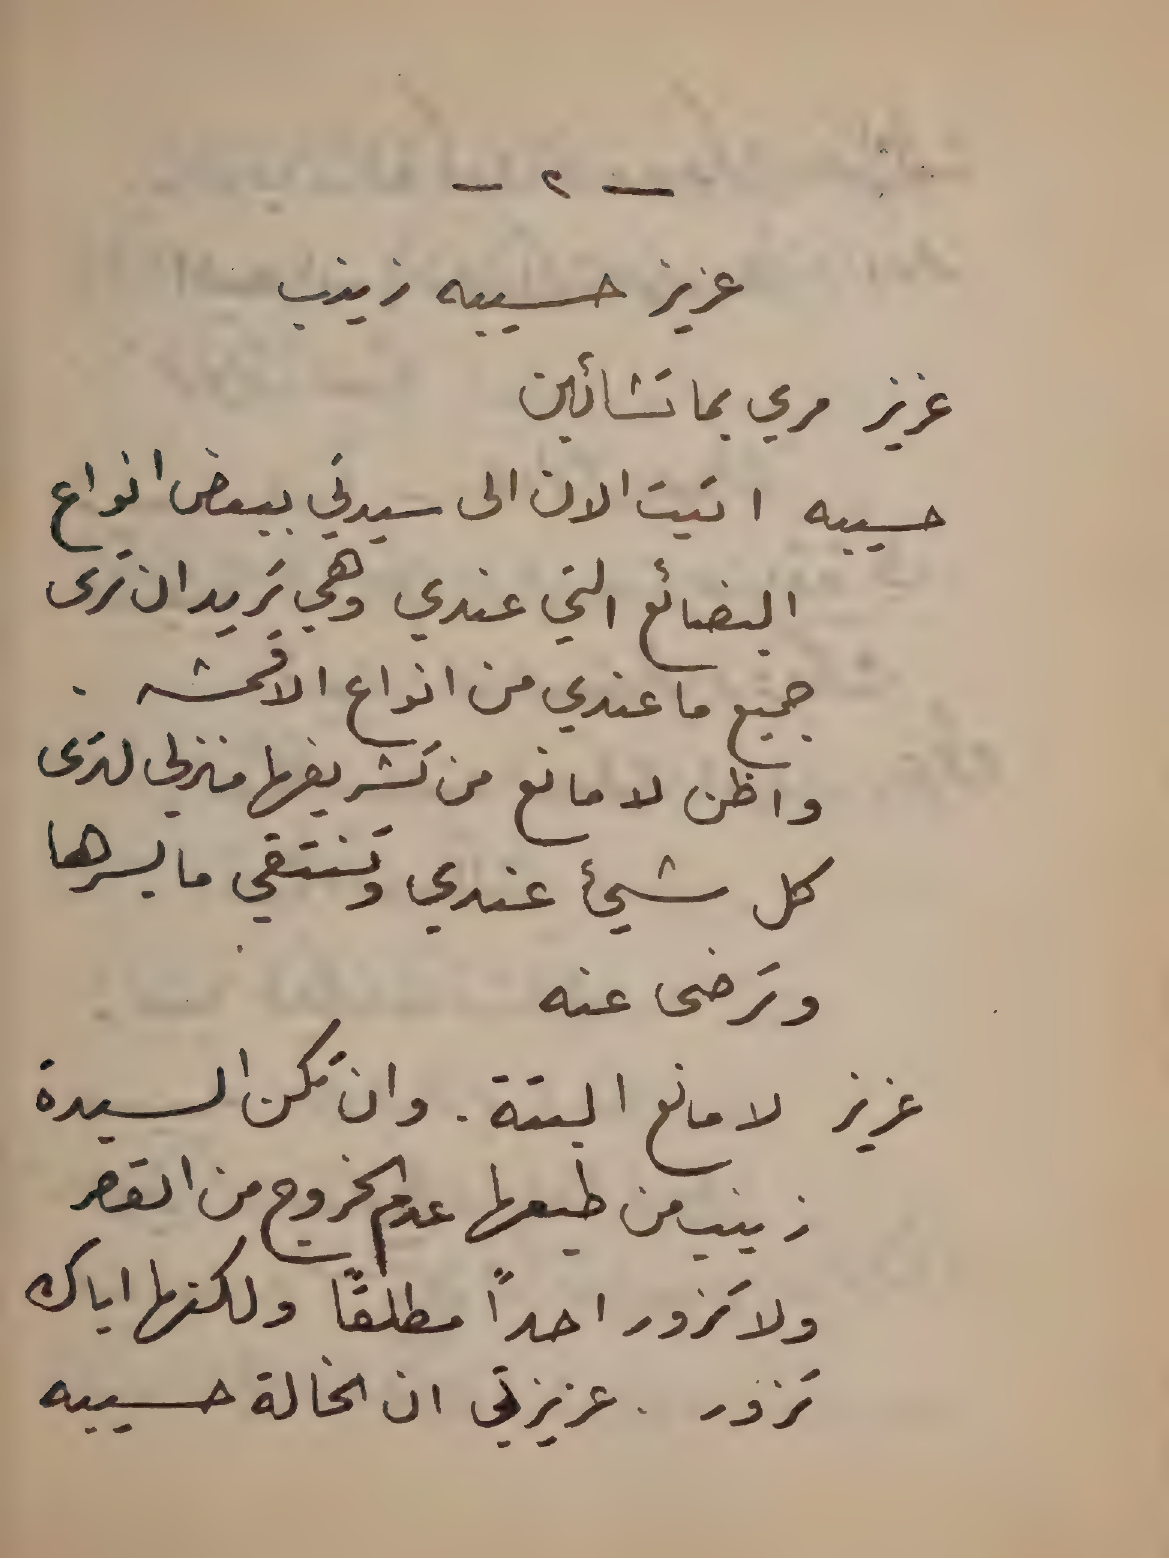 — ٢ —
عزيز حسيبه زينب
عزيز مري بما تشائين
حسيبه اتيت الان الى سيدتي ببعض انواع
البضائع التي عندي وهي تريد ان ترى
جميع ما عندي من انواع الاقمشه .
واظن لا مانع من تشريفها منزلي لترى
كل شيئ عندي وتنتقي ما يسرها
وترضى عنه
عزيز لا مانع البتة . وان تكن السيدة
زينب من طبعها عدم الخروج من القصر
ولا تزور احداً مطلقاً ولكنها اياك
تزور . عزيزتي ان الخالة حسيبه